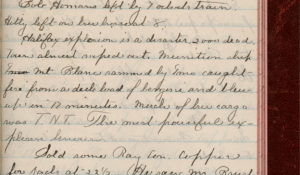 Bob Homans left by 7 oclock train.
Hetty left on her special 8.
Halifax explosion is a disaster, 2000 dead
Town almost wiped out. Munition ship
Mt Blanc rammed by Imo caught
fire from a deck load of benzine and blew
up in 17 minutes. Much of her cargo
was T.N.T. The most powerful ex-
plosive known
Sold some Ray Con. Copper
for sacls at 22½